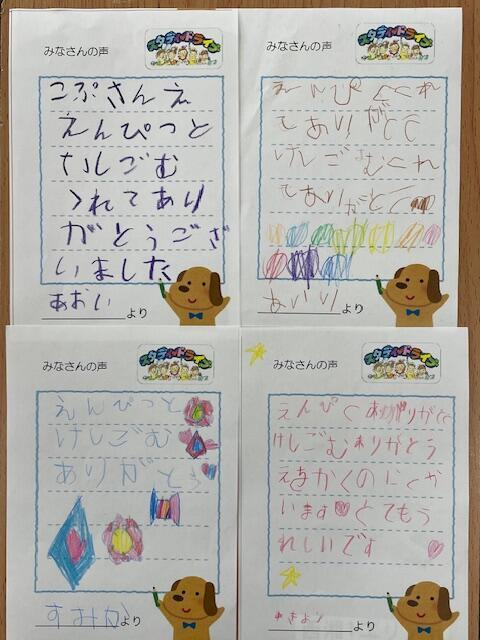 みなさんの声
スタディバドライブ
こぷさんえ
えんぴつと
けしごむ
くれてあり
がとうござ
いました
あおい より
みなさんの声
えんぴつくれ
てありがとう
けしごむくれ
てありがとう
あいり より
みなさんの声
えんぴつと
けしごむ
ありがとう
すみか より
みなさんの声
えんぴつ ありがとう
けしごむありがとう
えをかくのにつか
います とてもう
れしいです
ゆきより より